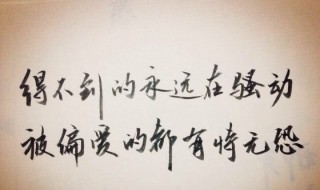 得不到的永远在骚动
被偏爱的都有恃无恐